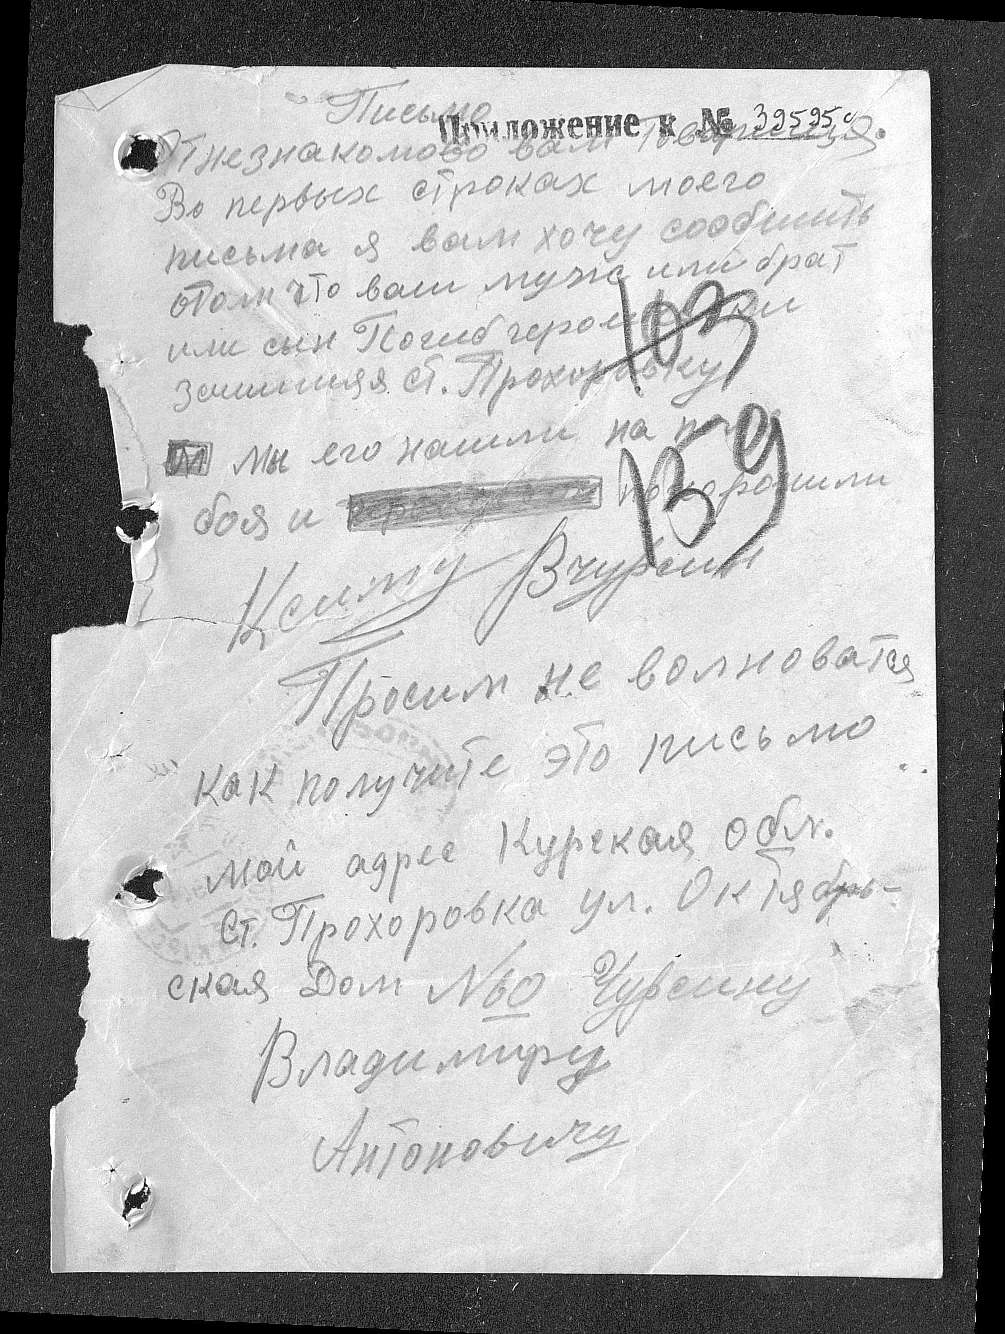 Письмо
Приложение к № 39595с
От незнакомово вам Товарища.
Во первых строках моего
письма я вам хочу сообщить
отом что ваш муж или брат
или сын Погиб геройски
защищяя ст. Прохоровку
103
м мы его нашли на поле
159
боя и похоронили
К сему Вчурсин
Просим не волноватся
как получите это письмо
мой адрес Курская обл.
ст. Прохоровка ул. Октябрь-
ская Дом №60 Чурсину
Владимиру
Антоновичу